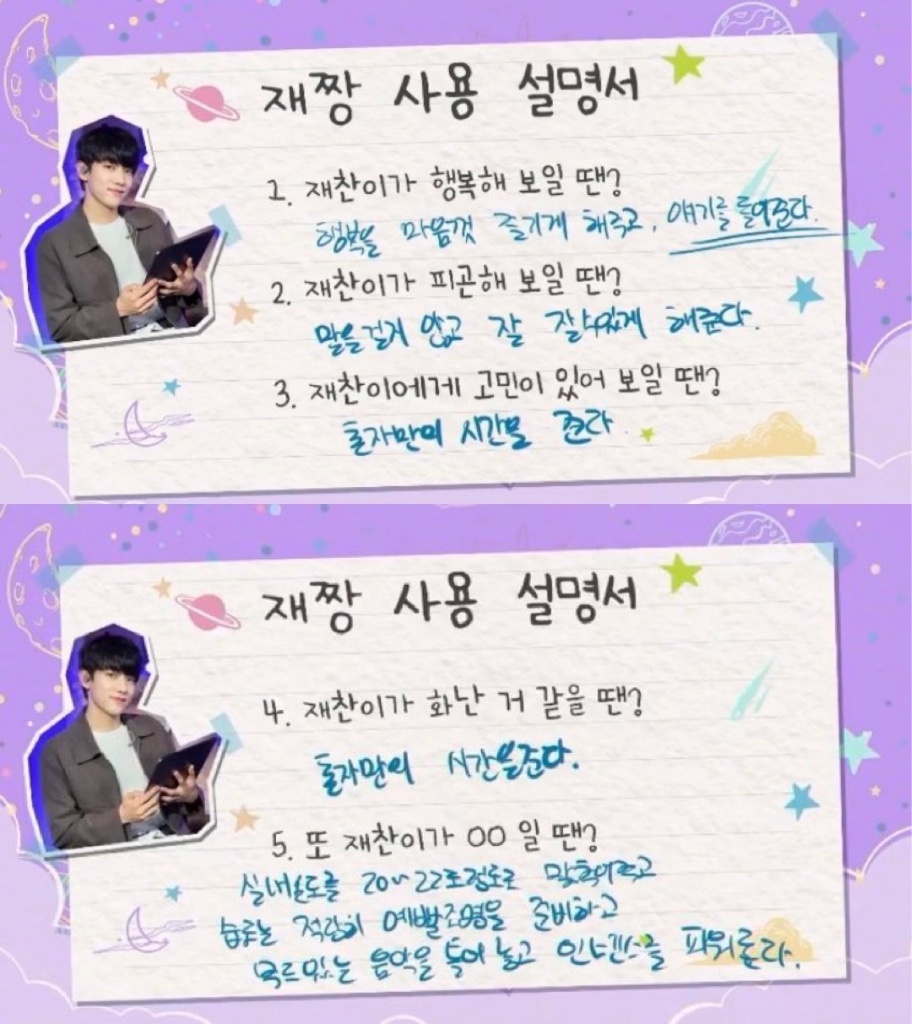 재짱 사용 설명서
1. 재찬이가 행복해 보일 땐?
행복을 마음껏 즐기게 해주고, 얘기를 들어준다.
2. 재찬이가 피곤해 보일 땐?
말을 걸지 않고 잘 잘수있게 해준다.
3. 재찬이에게 고민이 있어 보일 땐?
혼자만의 시간을 준다
재짱 사용 설명서
4. 재찬이가 화난 거 같을 땐?
혼자만의 시간을준다.
5. 또 재찬이가 OO 일 땐?
실내온도를 20~22도정도로 맞춰주고
습도는 적당히 예쁠조명을 준비하고
무드있는 음악을 틀어 놓고 인센스를 피워준다.